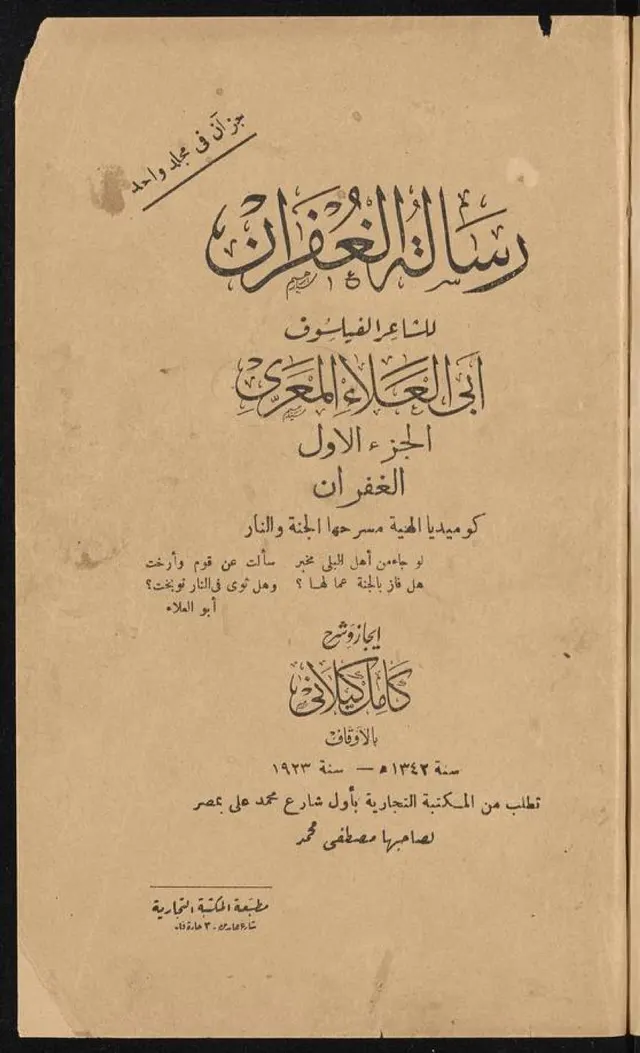 جزآن فى مجلد واحد
رسالة الغفران
للشاعر الفيلسوف
أبى العلاء المعرى
الجزء الاول
الغفران
كوميديا الهية مسرحها الجنة والنار
لو جاء من أهل البلى مخبر سألت عن قوم وأرخت
هل فاز بالجنة عمالها ؟ وهل ثوى فى النار نوبخت؟
أبو العلاء
ايجاز وشرح
كامل كيلانى
بالأوقاف
سنة ١٣٤٢ ه — سنة ١٩٢٣
تطلب من المكتبة التجارية بأول شارع محمد على بمصر
لصاحبها مصطفى محمد
مطبعة المكتبة التجارية
شارع